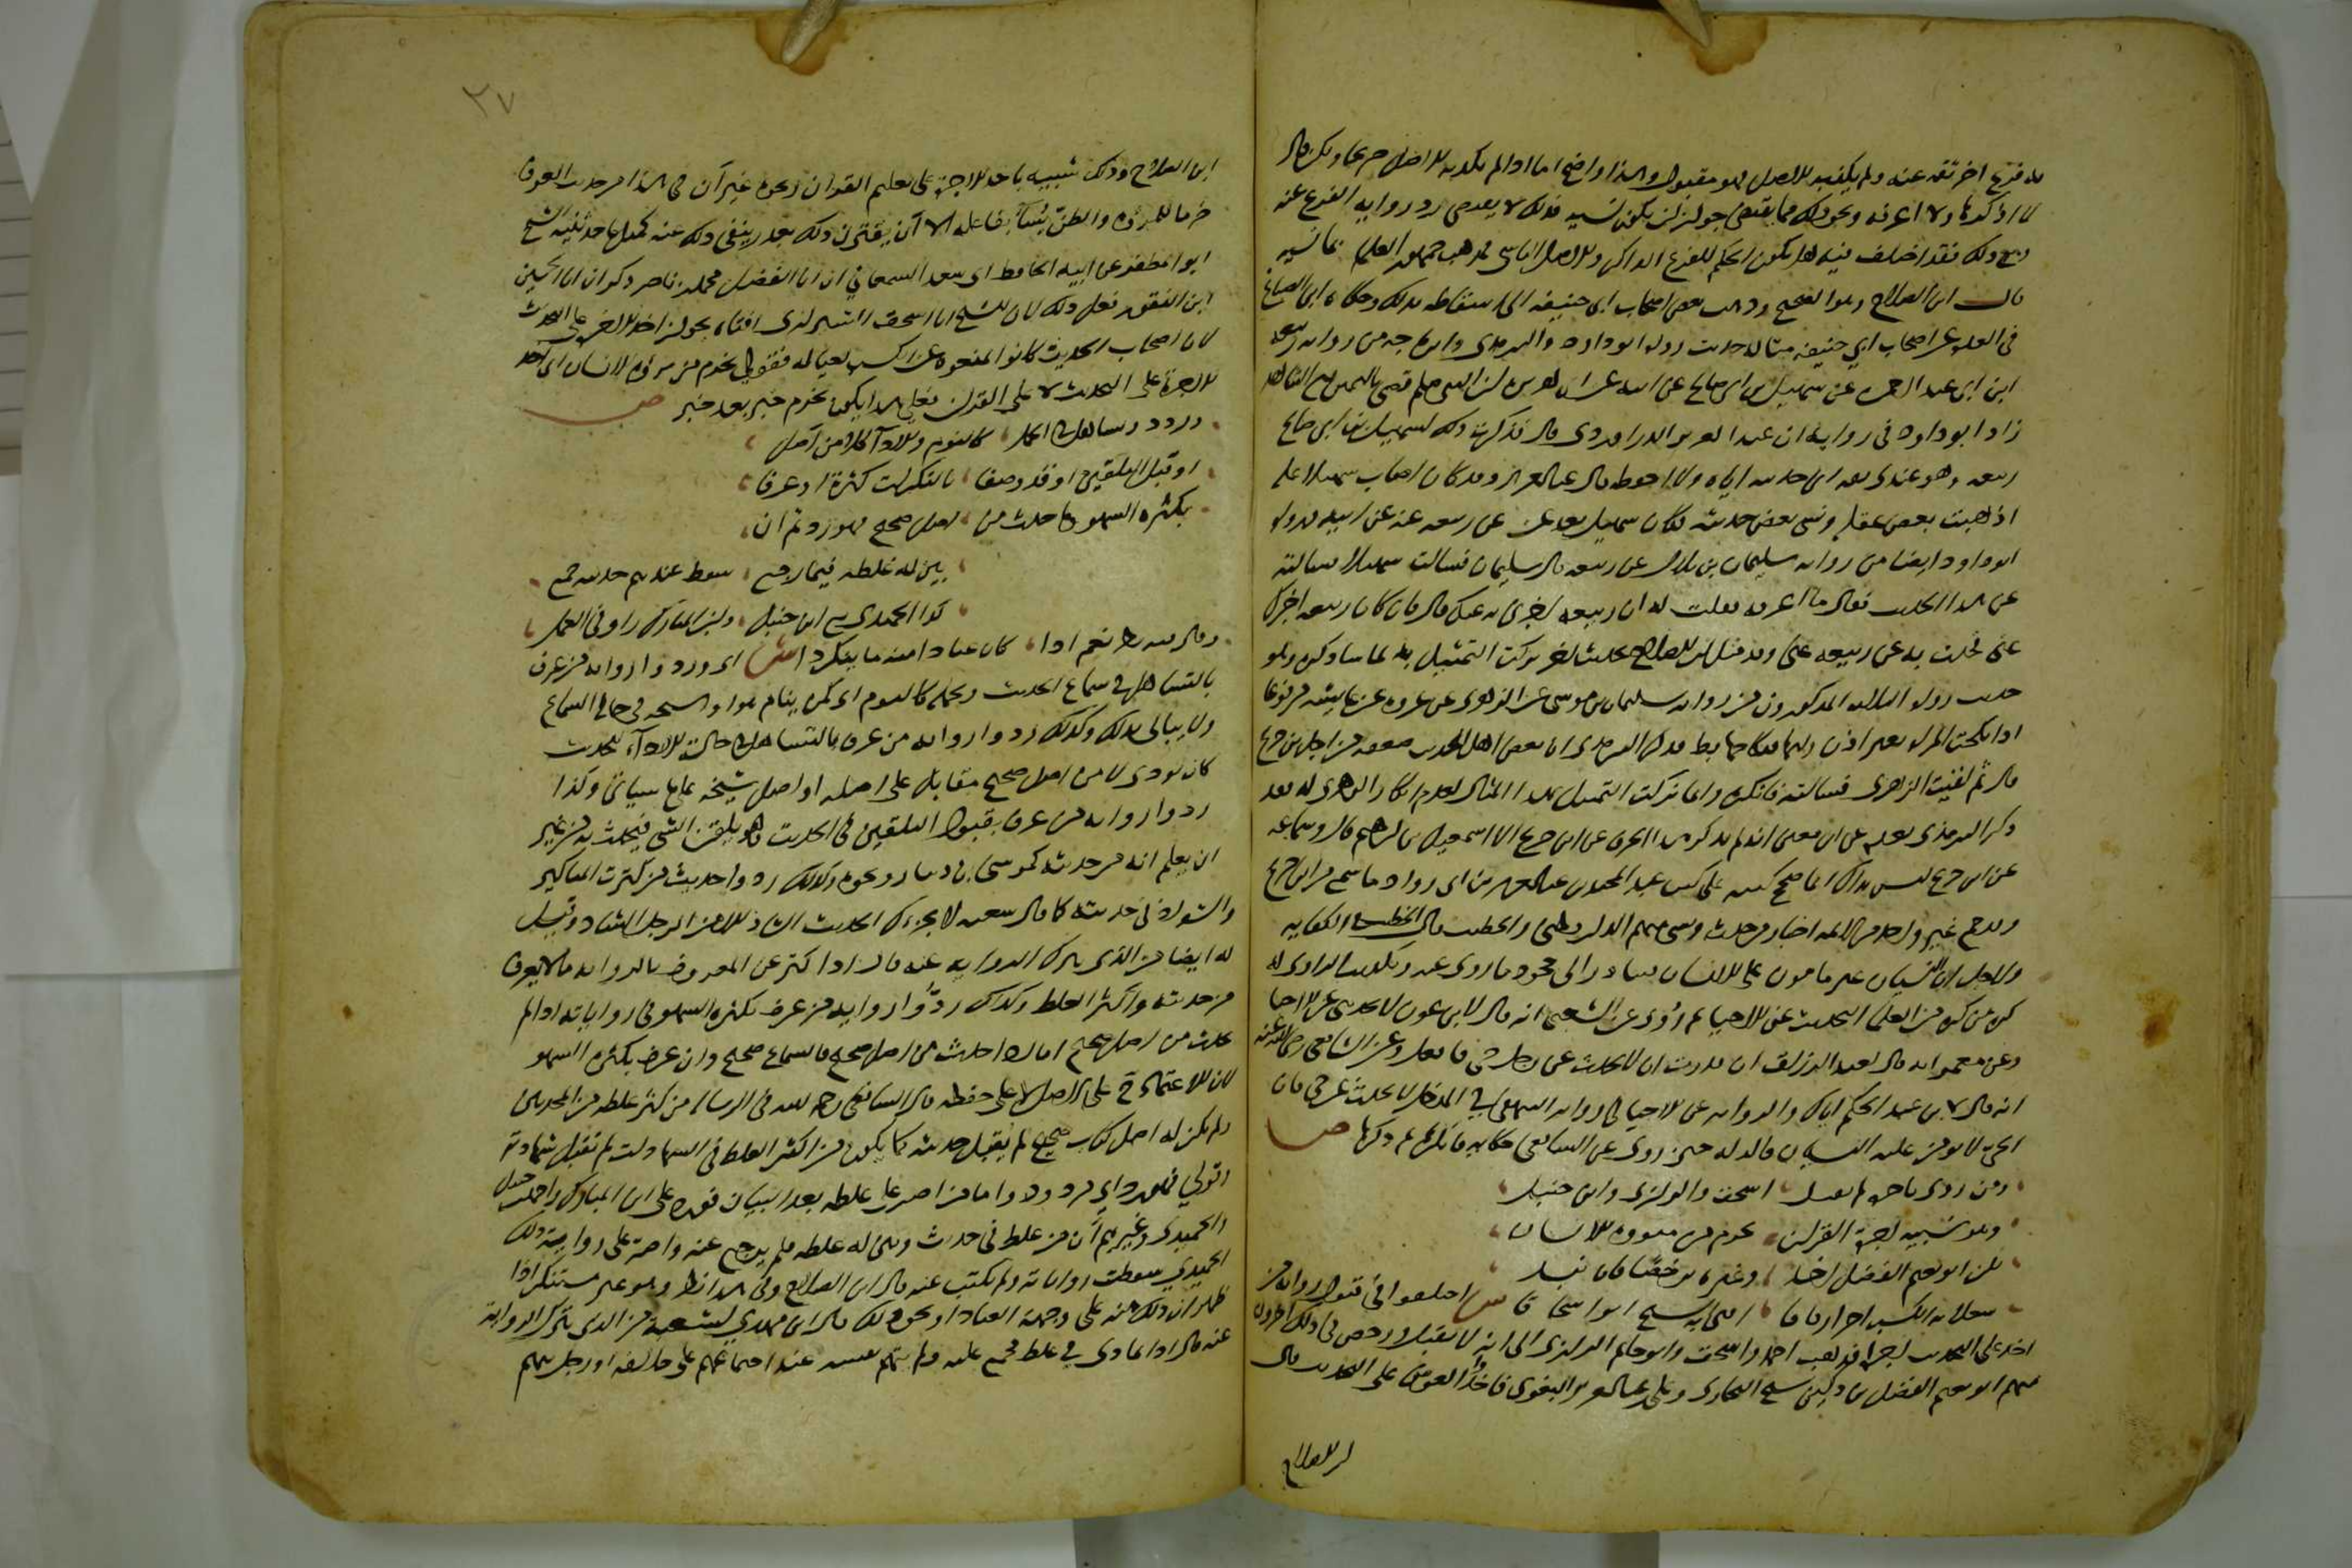 به فرع اخر ثقه عنه ولم يكذبه الاصل فهو مقبول وهذا واضح اما اذا لم يكذبه الاصل صريحا ولكن قال
لا اذكره او لا اعرفه ونحو ذلك مما يقتضي جواز ان يكون نسيه فذلك لا يقتضي رد رواية الفرع عنه
ومع ذلك فقد اختلف فيه هل يكون الحكم للفرع الذاكر او للاصل الناسي فذهب جمهور العلما
قال ابن الصلاح وهو الصحيح وذهب بعض اصحاب ابي حنيفه الى اسقاطه بذلك وحكاه ابن الصباغ
في العده عن اصحاب ابي حنيفه مثاله حديث رواه ابو داود والترمذي وابن ماجه من رواية ربيعه
ابن ابي عبد الرحمن عن سهيل بن ابي صالح عن ابيه عن ابي هريره ان النبي صلعم قضى باليمين مع الشاهد
زاد ابو داود في رواية ان عبد العزيز الدراوردي قال فذكرت ذلك لسهيل فقال اخبرني
ربيعه وهو عندي ثقه اني حدثته اياه ولا احفظه قال عبد العزيز وقد كان اصاب سهيلا عله
اذهبت بعض عقله ونسي بعض حديثه فكان سهيل بعد يحدثه عن ربيعه عنه عن ابيه ورواه
ابو داود ايضا من رواية سليمان بن بلال عن ربيعه قال سليمان فلقيت سهيلا فسالته
عن هذا الحديث فقال ما اعرفه فقلت له ان ربيعه اخبرني به عنك قال فان كان ربيعه اخبرك
عني فحدث به عن ربيعه عني وقد مثل ابن الصلاح بحديث اخر تركت التمثيل به لما ساذكره وهو
حديث رواه الثلاثه المذكورون من رواية سليمان بن موسى عن الزهري عن عروه عن عايشه مرفوعا
اذا نكحت المراه بغير اذن وليها فنكاحها باطل فذكر الترمذي ان بعض اهل الحديث ضعفه من اجل ابن جريج
قال ثم لقيت الزهري فسالته فانكره وانما تركت التمثيل بهذا المثال لعدم انكار الزهري له فقد
ذكر الترمذي بعده عن ابن معين انه لم يذكر هذا الحرف عن ابن جريج الا اسمعيل بن ابرهيم قال وسماعه
عن ابن جريج ليس بذاك انما صحح كتبه على كتب عبد المجيد بن عبد العزيز بن ابي رواد ما سمع من ابن جريج
وقد جمع غير واحد من الايمه اخبار من حدث ونسي منهم الدارقطني والخطيب قال الخطيب في الكفايه
ولاجل ان النسيان غير مامون على الانسان بحيث يبادر الى جحود ما روي عنه وتكذيب الراوي له
كره من كره من العلما التحديث عن الاحياء ثم روي عن الشعبي انه قال لابن عون لا تحدثني عن الاحيا
وعن معمر انه قال لعبد الرزاق ان قدرت ان لا تحدث عن رجل حي فافعل وعن الشافعي رضي الله عنه
انه قال لابن عبد الحكم اياك والروايه عن الاحيا وفي روايه البيهقي في المدخل لا تحدث عن حي فان
الحي لا يومن عليه النسيان قاله له حين روى عن الشافعي حكايه فانكرها ثم ذكرها ص
ومن روى باجرة لم يقبل اسحق والرازي وابن حنبل
وهو شبيه اجرة القران يخرم من مروءة الانسان
لكن ابو نعيم الفضل اخذ وغيره ترخصا فان نبذ
شغلا به الكسب اجز ارفاقا افتى به الشيخ ابو اسحاقا ش اختلفوا في قبول رواية من
اخذ على التحديث اجرا فذهب احمد واسحق وابو حاتم الرازي الى انه لا يقبل ورخص في ذلك اخرون
منهم ابو نعيم الفضل بن دكين شيخ البخاري وعلي بن عبد العزيز البغوي فاخذوا العوض على التحديث قال
ابن الصلاح
٢٧
ابن الصلاح وذلك شبيه باخذ الاجرة على تعليم القران ونحوه غير ان في هذا من حيث العرف
خرما للمروءة والظن يساء بفاعله الا ان يقترن ذلك بعذر ينفي ذلك عنه كمثل ما حدثنيه الشيخ
ابو المظفر عن ابيه الحافظ ابي سعد السمعاني ان ابا الفضل محمد بن ناصر ذكر ان ابا الحسين
ابن النقور فعل ذلك لان الشيخ ابا اسحق الشيرازي افتاه بجواز اخذ الاجر على التحديث
لان اصحاب الحديث كانوا يمنعونه عن الكسب لعياله فقولي يخرم من مروءة الانسان اي اخذ
الاجرة على التحديث لا على القران فعلى هذا يكون يخرم خبر بعد خبر ص
ورد ذو تساهل في الحمل كالنوم والادا كلا من اصل
او قبل التلقين او قد وصفا بالمنكرات كثرة او عرفا
بكثره السهو وما حدث من اصل صحيح فهو رد ثم ان
بين له غلطه فما رجع سقط عندهم حديثه جمع
كذا الحميدي مع ابن حنبل وابن المبارك راوا في العمل
قال وفيه نظر نعم اذا كان عنادا منه ما ينكر ذا ش اي ورد وا رواية من عرف
بالتساهل في سماع الحديث وتحمله كالنوم اي كمن ينام هو او شيخه في حال السماع
ولا يبالي بذلك وكذلك ردوا رواية من عرف بالتساهل في حالة الاداء للحديث
كان يودي لا من اصل صحيح مقابل على اصله او اصل شيخه على ما سياتي وكذا
ردوا رواية من عرف بقبول التلقين في الحديث وهو يلقن الشي فيحدث به من غير
ان يعلم انه من حديثه كموسى بن دينار ونحوه وكذلك ردوا حديث من كثرت المناكير
والشواذ في حديثه كما قال شعبه لا يجيئك الحديث الشاذ الا من الرجل الشاذ وقيل
له ايضا من الذي نترك الروايه عنه قال اذا اكثر عن المعروف بالروايه ما لا يعرف
من حديثه واكثر الغلط وكذلك ردوا رواية من عرف بكثره السهو في رواياته اذا لم
يحدث من اصل صحيح اما اذا حدث من اصل صحيح فالسماع صحيح وان عرف بكثره السهو
لان الاعتماد ح على الاصل لا على حفظه قال الشافعي رحمه الله في الرساله من كثر غلطه من المحدثين
ولم يكن له اصل كتاب صحيح لم يقبل حديثه كما يكون من اكثر الغلط في الشهادات لم تقبل شهادته
وقولي فهو رد اي مردود واما من اصر على غلطه بعد البيان فورد عن ابن المبارك واحمد بن حنبل
والحميدي وغيرهم ان من غلط في حديث وبين له غلطه فلم يرجع عنه واصر على رواية ذلك
الحديث سقطت رواياته ولم يكتب عنه قال ابن الصلاح وفي هذا نظر وهو غير مستنكر اذا
ظهر ان ذلك منه على وجهة العناد او نحو ذلك قال ابن مهدي لشعبة من الذي تترك الرواية
عنه قال اذا تمادى في غلط مجمع عليه ولم يتهم نفسه عند اجتماعهم على خلافه او رجل يتهم